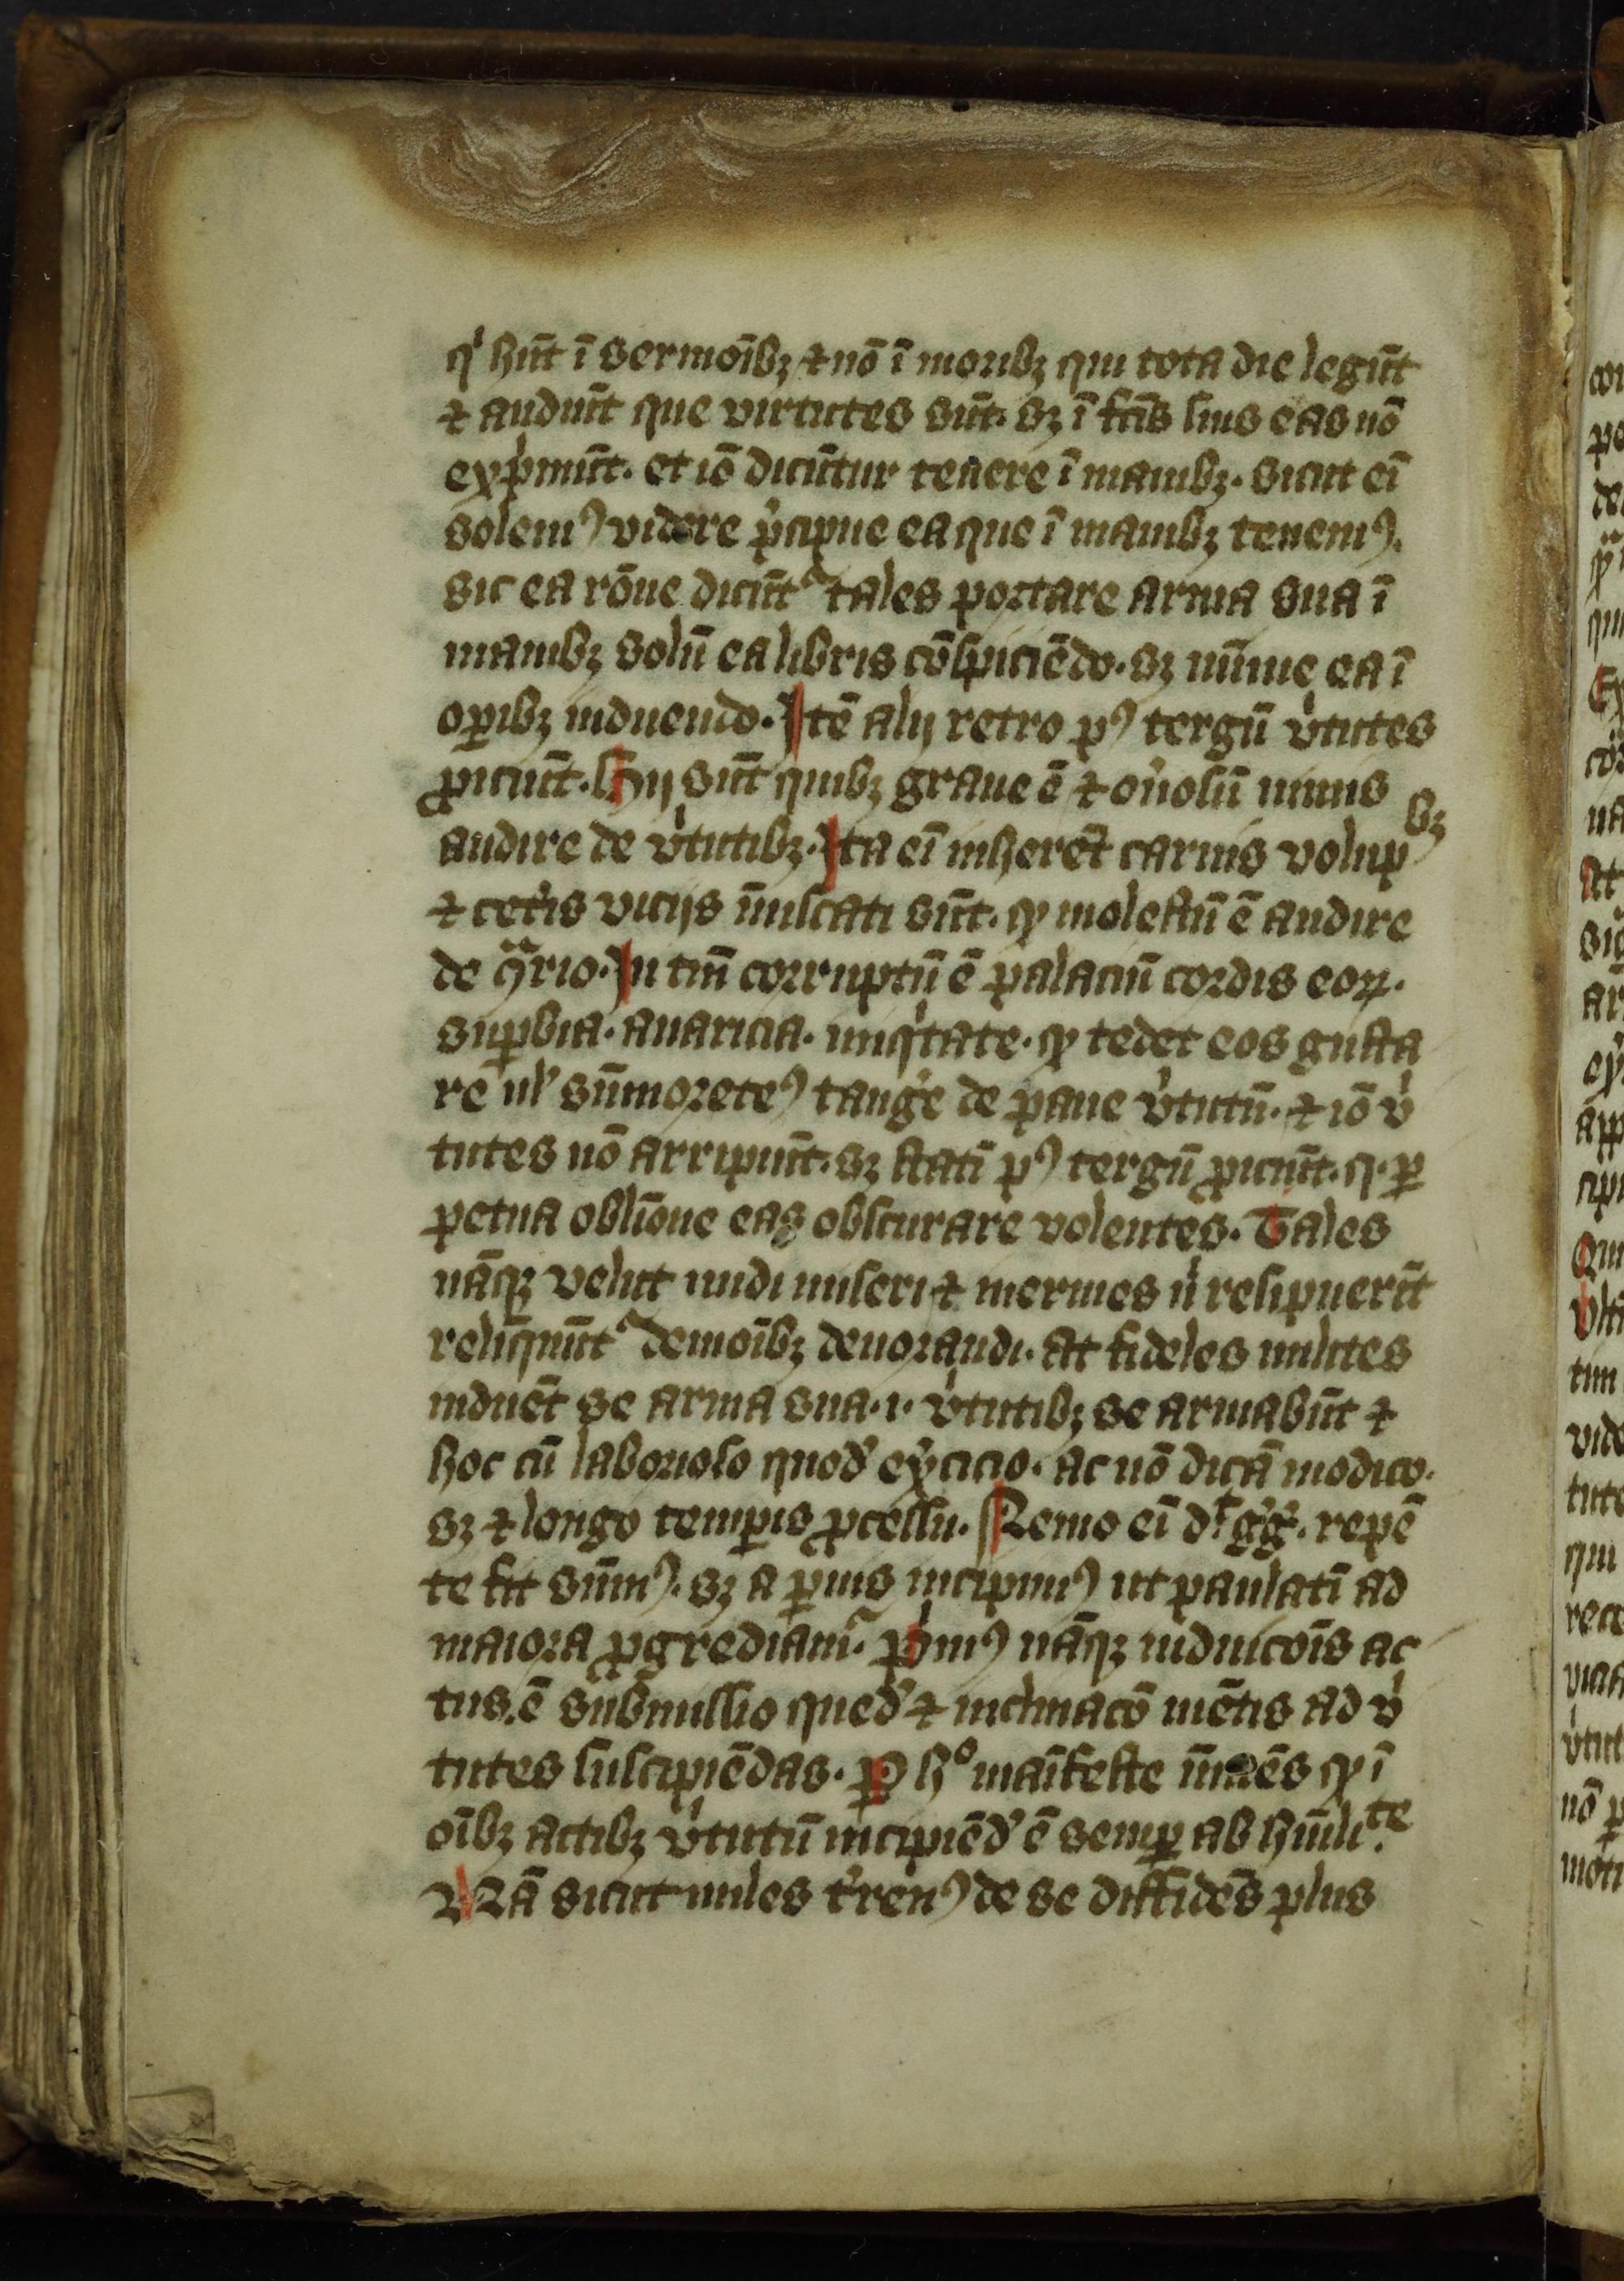 qͥ hnt̄ ī sermoībꝫ ⁊ nō ī moribꝫ qui tota die legūt
⁊ audiūt que virtutes sūt. sꝫ ī fctīs suis eas nō
expͥmūt. et iō dicūtur tenere ī manibꝫ. sicut eī
solemꝰ videre p̄cipue ea que ī manibꝫ tenemꝰ.
sic ea rōne dicūtᷣ tales portare arma sua ī
manibꝫ solū ea libris cōspiciēdo. sꝫ mīme ea ī
oꝑibꝫ induendo. Itē alij retro pꝰ tergū vͥtutes
ꝓiciūt. Hij sūt quibꝫ graue ē ⁊ on̓osū nimis
audire de vͥtutibꝫ. Ita eī inherēt carnis volupbꝫ
⁊ cet̓is vicijs īmiscati sūt. ꝙ molestū ē audire
de ꝯᷓrio. In tm̄ corruptū ē palaciū cordis eoꝝ.
suꝑbia. auaricia. iniqͥtate. ꝙ tedet eos gusta
re ul̓ sūmoretēꝰ tang̓e de pane vͥtutū. ⁊ iō vͥ
tutes nō arripiūt. sꝫ statī pꝰ tergū ꝓiciūt. q. ꝑ
petua oblīone eas obscurare volentes. Tales
nāqꝫ velut nudi miseri ⁊ inermes nͥ resipuerīt
reliquūtᷣ demoībꝫ deuorandi. At fideles milites
induēt se arma sua. i. vͥtutibꝫ se armabūt ⁊
hoc cū laborioso quod̓ ex̓cicio. ac nō dicā modico.
sꝫ ⁊ longo temꝑis ꝓcessu. Nemo eī dͭ gg̓. repē
te fit sūmꝰ. sꝫ a ꝑuis incipimꝰ ut paulatī ad
maiora ꝓgrediamᷣ. Pͥmꝰ nāqꝫ induicōis ac
tus. ē submissio qued̓ ⁊ inclinacō mētis ad vͥ
tutes suscipiēdas. P hͦ maīfeste īnuēs ꝙ ī
oībꝫ actibꝫ vͥtutū incipiēd̓ ē semꝑ ab hūiliᵗᵉ.
Nā sicut miles t̓renꝰ de se diffidēs plus